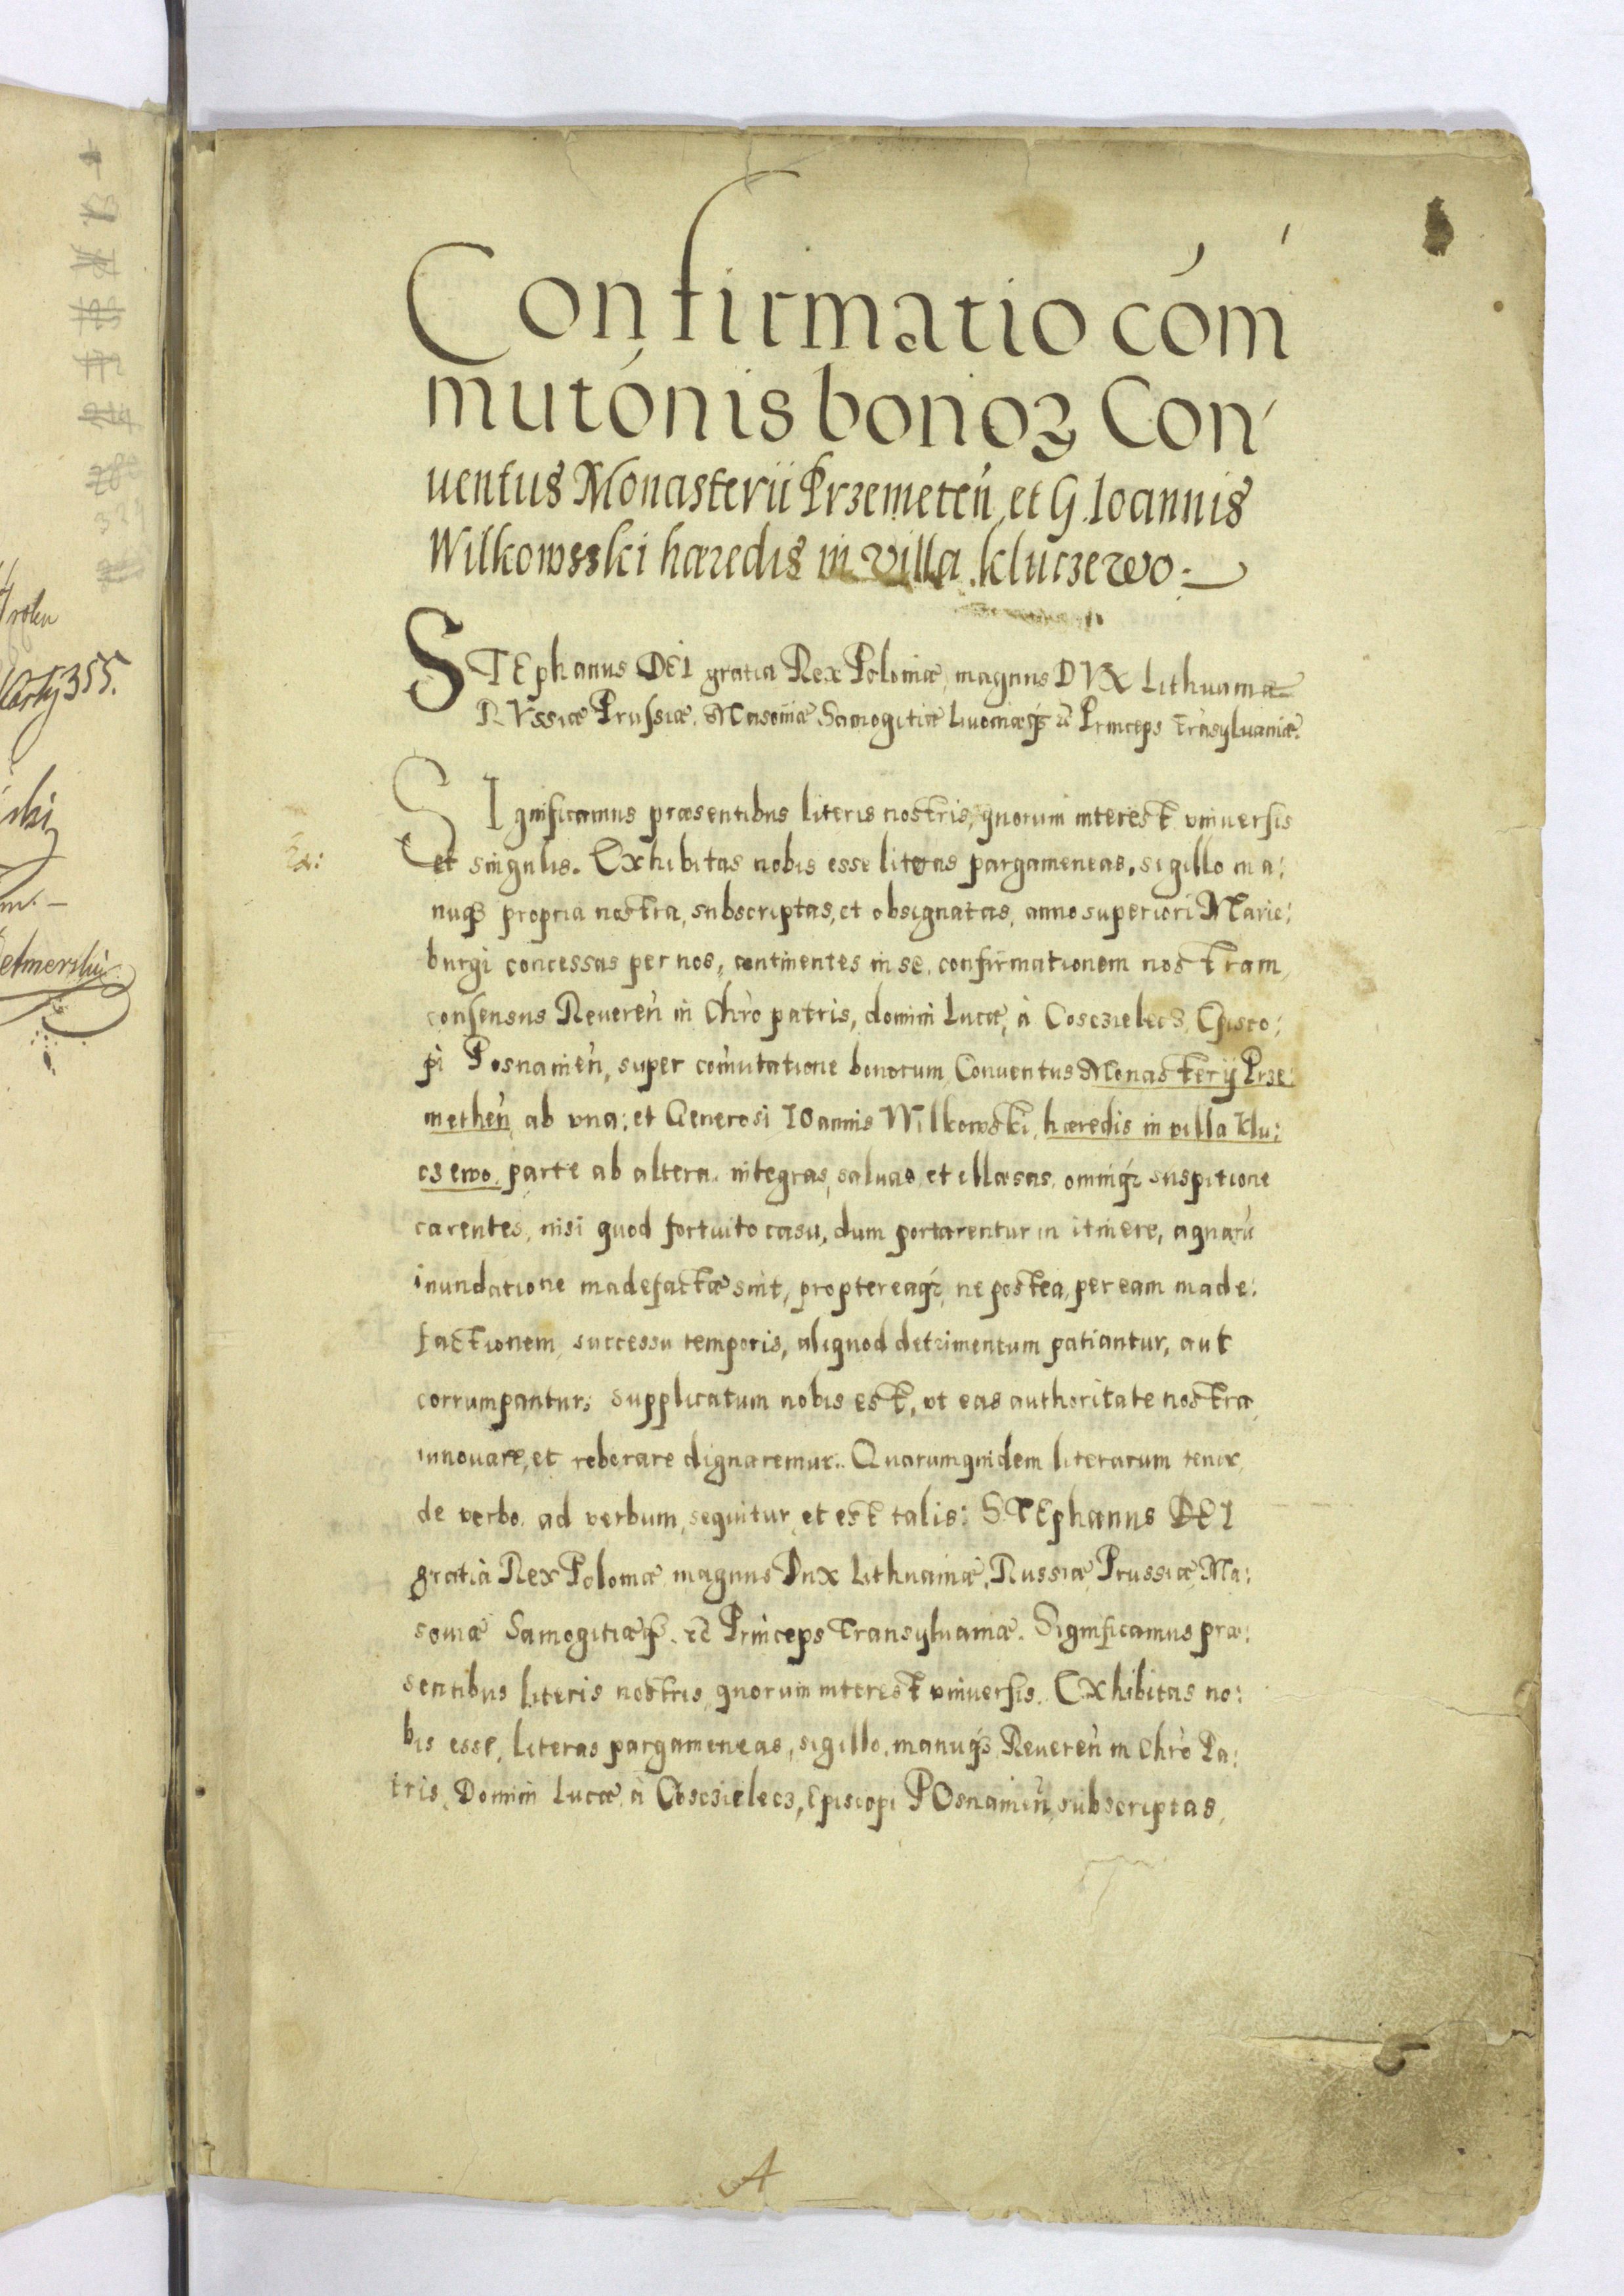 Confirmatio com
mutónis bonoꝝ Con
uentus Monasterii Przemeteń, et G. Ioannis
Wilkowsski hæredis in villa kluczewo.
STEphanus DEI gratia Rex Poloniæ, magnus DVX Lithuaniæ
RVssiæ Prussiæ, Masouiæ Samogitiæ Liuoniæq꙳ ꝛc Princeps Trãsyluaniæ.
SIgnificamus præsentibus literis nostris, quorum interest vniuersis
et singulis. Exhibitas nobis esse literas pargameneas, sigillo ma:
nuq꙳ propria nostra, subscriptas, et obsignatas, anno superiori Marie:
burgi concessas per nos, continentes in se, confirmationem nostram,
consensus Reuereń in Chrò patris, domini Lucæ, à Cosczielecz, Episco:
pi Posnanień, super com̃utatione bonorum Conuentus Monasterij Prze:
metheń, ab vna: et Generosi IOannis Wilkowski, hæredis in villa Klu:
czewo, parte ab altera, integras, saluas, et illæsas, omniq꙳ suspitione
carentes, nisi quod fortuito casu, dum portarentur in itinere, aquarũ
inundatione madefactæ sint, proptereaq꙳, ne postea, per eam made:
factionem, successu temporis, aliquod detrimentum patiantur, aut
corrumpantur; supplicatum nobis est, vt eas authoritate nostra,
innouare, et roborare dignaremur. Quarumquidem literarum tenor,
de verbo ad verbum, sequitur, et est talis: STEphanus DEI
gratia Rex Poloniæ magnus Dux Lithuaniæ, Russiæ, Prussiæ, Ma:
souiæ Samogitiæq꙳. ꝛc Princeps Transyluaniæ. Significamus præ:
sentibus literis nostris, quorum interest vniuersis. Exhibitas no:
bis esse, literas pargameneas, sigillo, manuq꙳, Reuereń in Chrò Pa:
tris, Domini Lucæ, à Cosczielecz, Episcopi POsnanień, subscriptas,
A
355.